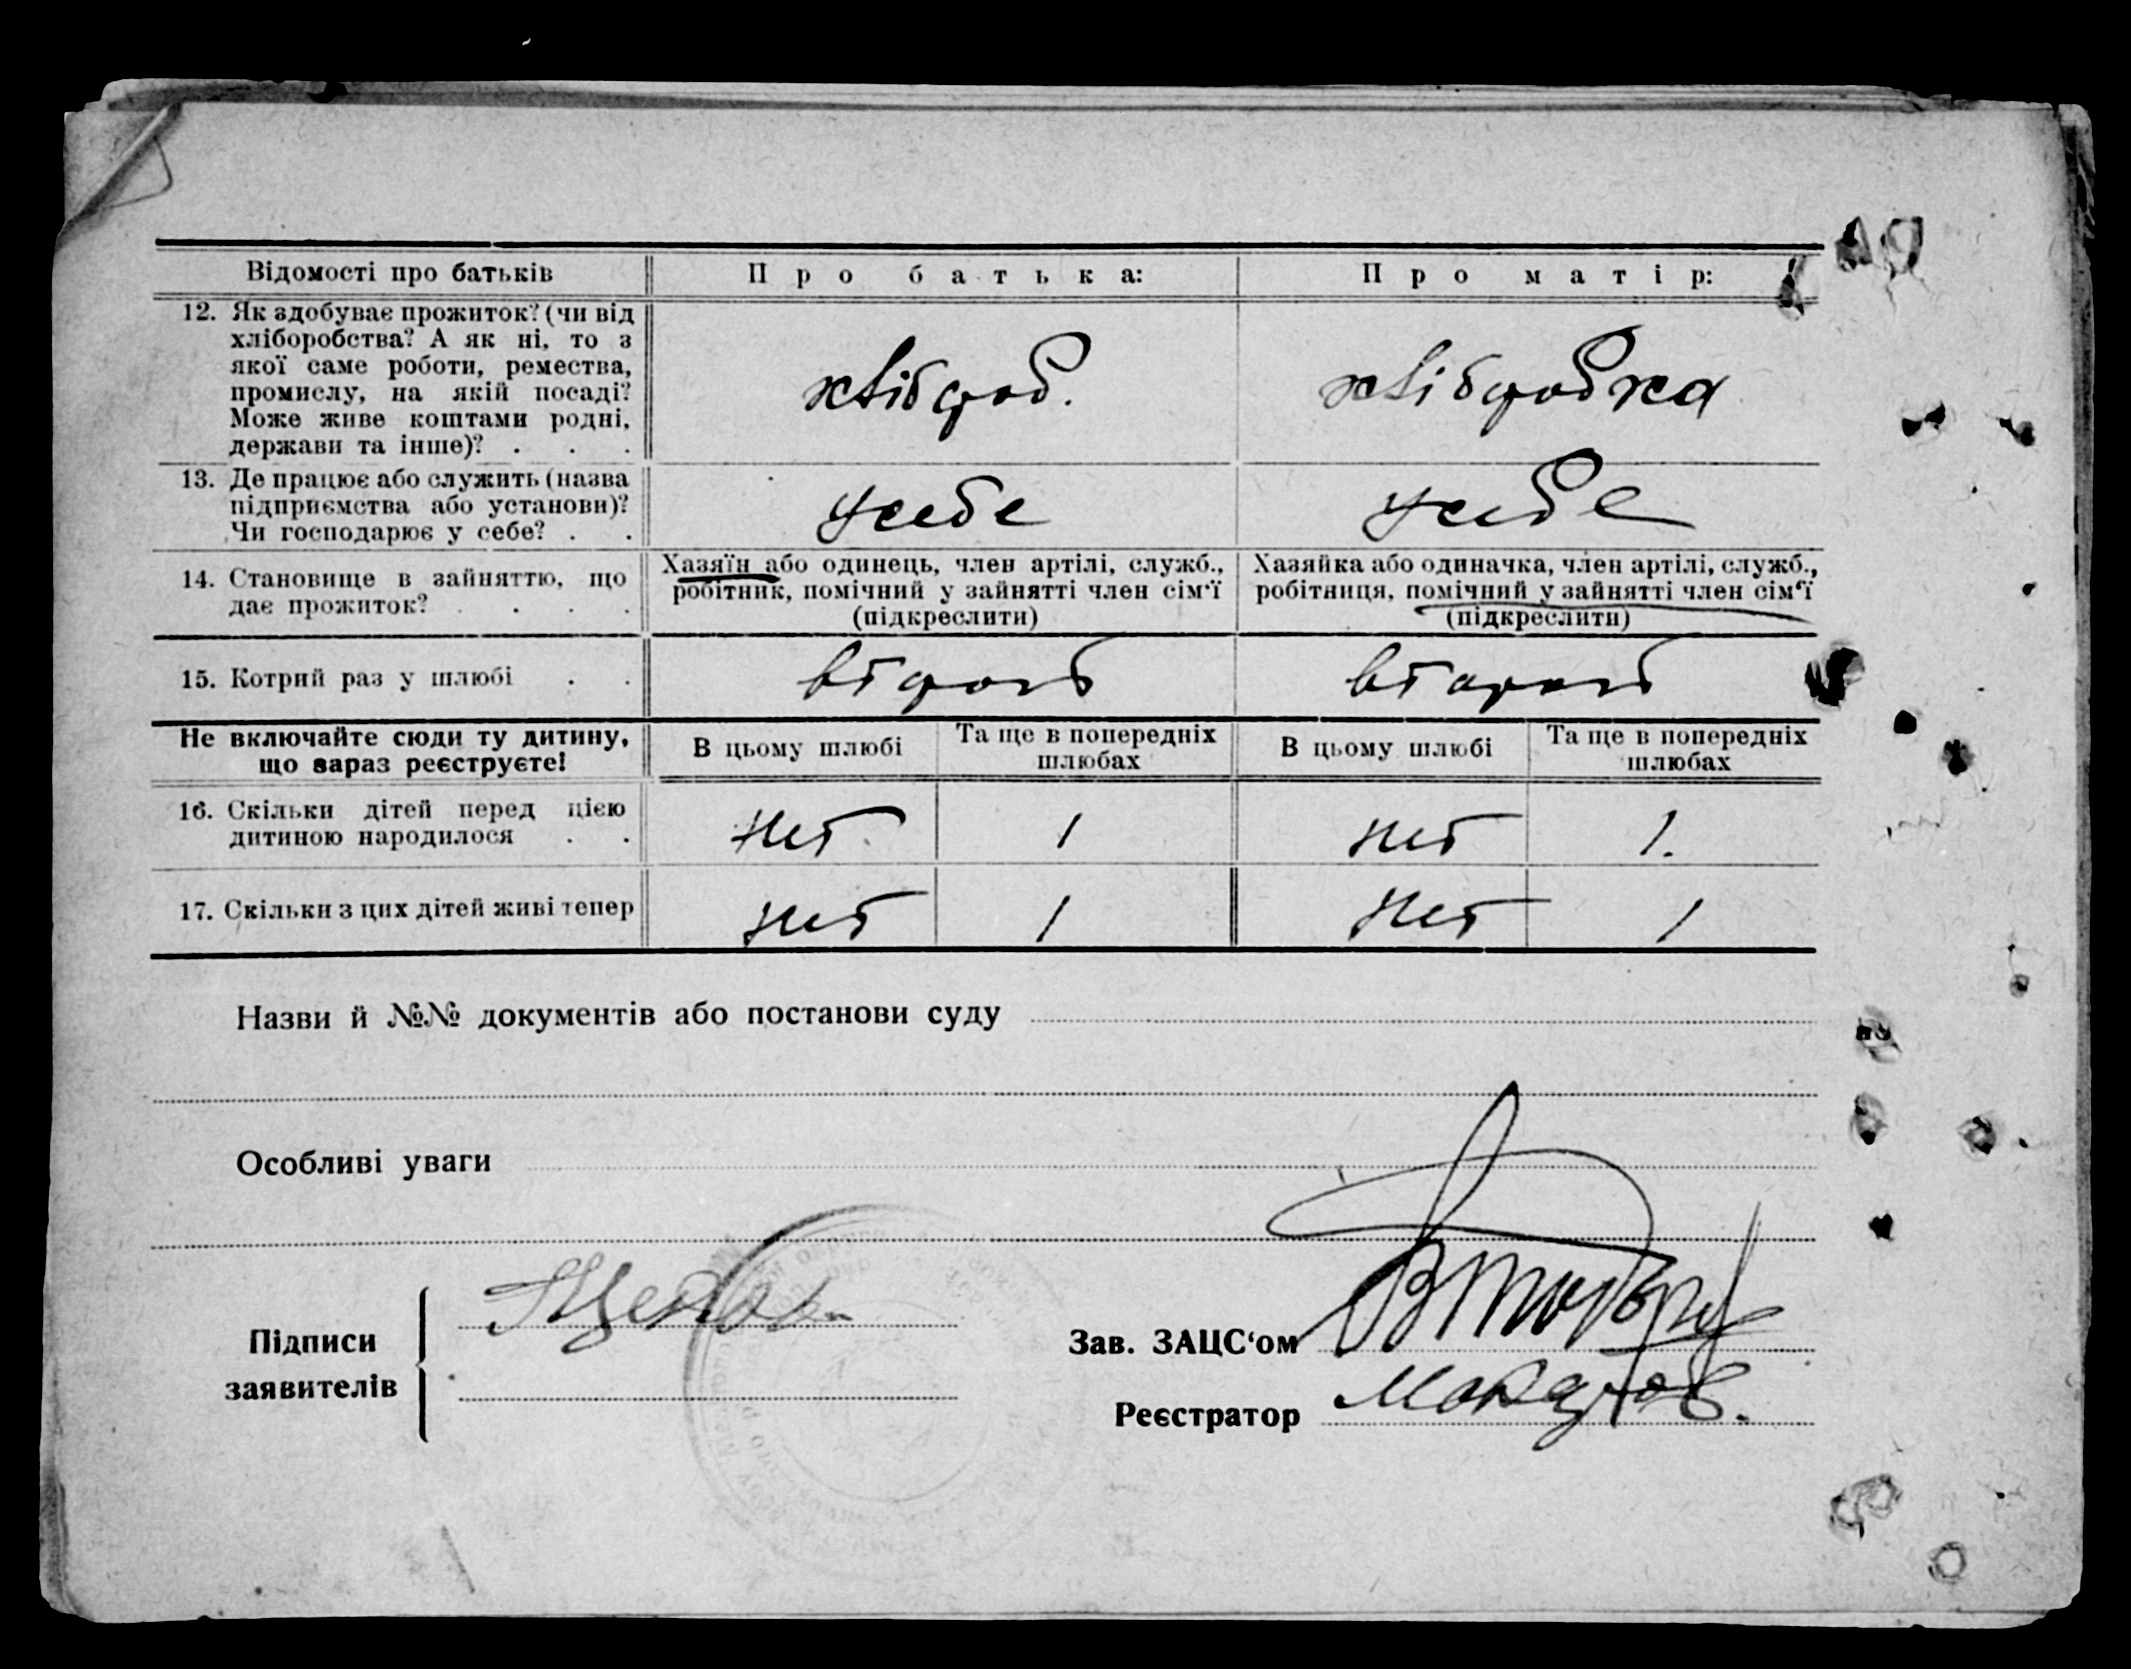 Відомості про батьків
Про батька:
Про матір:
12. Як здобуває прожиток? (чи від
хліборобства? А як ні, то з
якої саме роботи, ремества,
промислу, на якій посаді?
Може живе коштами родні,
держави та інше)? . . .
хліброб.
хлібробка
13. Де працює або служить (назва
підприємства або установи)?
Чи господарює у себе? . .
у себе
у себе
14. Становище в зайняттю, що
дає прожиток? . . . .
Хазяїн або одинець, член артілі, служб.,
робітник, помічний у зайнятті член сім‘ї
(підкреслити)
Хазяйка або одиначка, член артілі, служб.,
робітниця, помічний у зайнятті член сім‘ї
(підкреслити)
15. Котрий раз у шлюбі . .
второй
второй
Не включайте сюди ту дитину,
що зараз реєструєте!
В цьому шлюбі
Та ще в попередніх
шлюбах
В цьому шлюбі
Та ще в попередніх
шлюбах
16. Скільки дітей перед цією
дитиною народилося . .
нет
1
нет
1.
17. Скільки з цих дітей живі тепер
нет
1
нет
1
Назви й №№ документів або постанови суду
Особливі уваги
Підписи
заявителів
Зав. ЗАЦС‘ом
Реєстратор